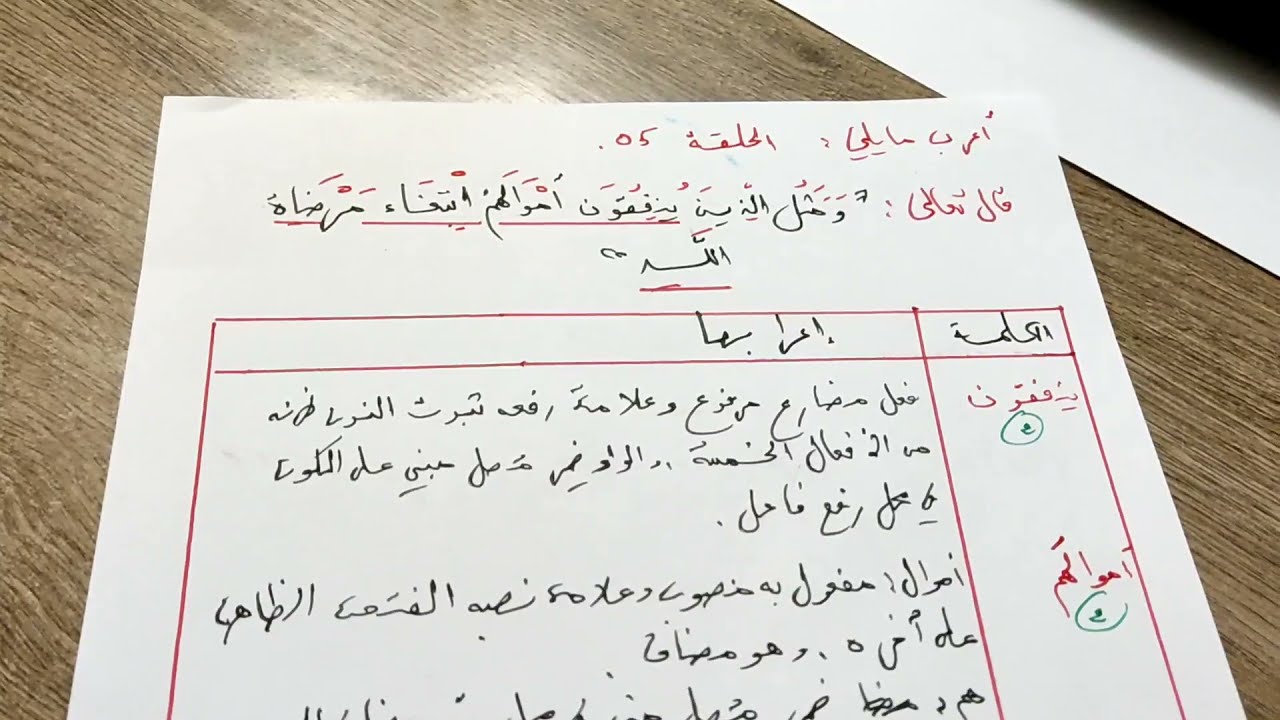 أعرب مايلي: الحلقة 05.
قال تعالى: "وَمَثَلُ الَّذِينَ يُنفِقُونَ أَمْوَالَهُمُ ابْتِغَاء مَرْضَاةِ
اللَّه"
الكلمة إعرابها
ينفقون فعل مضارع مرفوع وعلامة رفعه ثبوت النون لأنه
2 من الأفعال الخمسة، والواو ضمير متصل مبني على السكون
في محل رفع فاعل.
أموالَهم أموال: مفعول به منصوب وعلامة نصبه الفتحة الظاهرة
2 على آخره. وهو مضاف.
هم: ضمير متصل مبني في محل